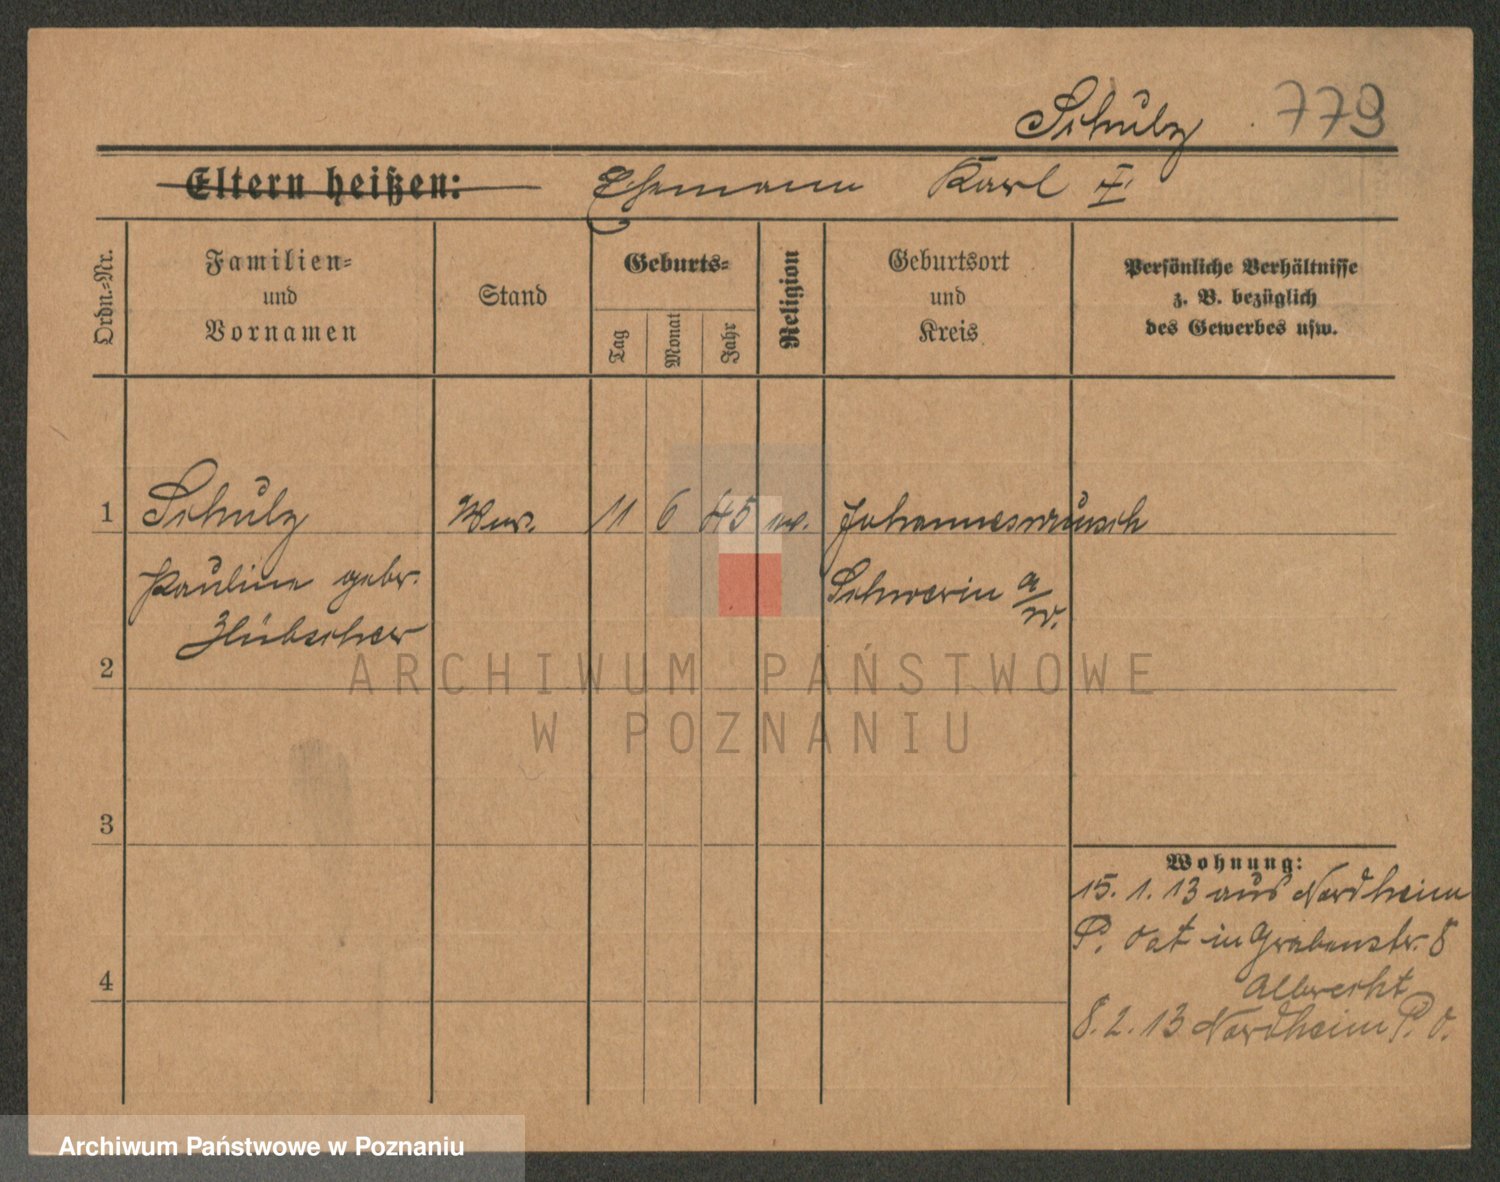 Schulz 779
Eltern heißen: Ehemann Karl †
Ordn.-Nr.
Familien-
und
Vornamen
Stand
Geburts-
Tag
Monat
Jahr
Religion
Geburtsort
und
Kreis
Persönliche Verhältnisse
z. B. bezüglich
des Gewerbes usw.
1 Schulz Ww. 11 6 45 ev. Johanneswunsch
Pauline gebr. Schwerin a/W.
Hübscher
2
3
4
Wohnung:
15. 1. 13 aus Nordheim
P. Ost in Grabenstr. 8
Albrecht
8. 2. 13 Nordheim P. O.
ARCHIWUM PAŃSTWOWE
W POZNANIU
Archiwum Państwowe w Poznaniu